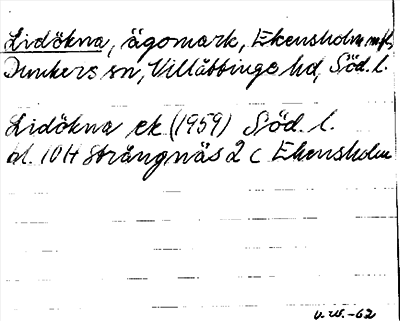 Lidökna, ägomark, Ekensholm m fl,
Dunkers sn, Villåttinge hd, Söd. l.
Lidökna ek (1959) Söd. l.
bl. 10 H Strängnäs 2 c Ekensholm
V. W. -62